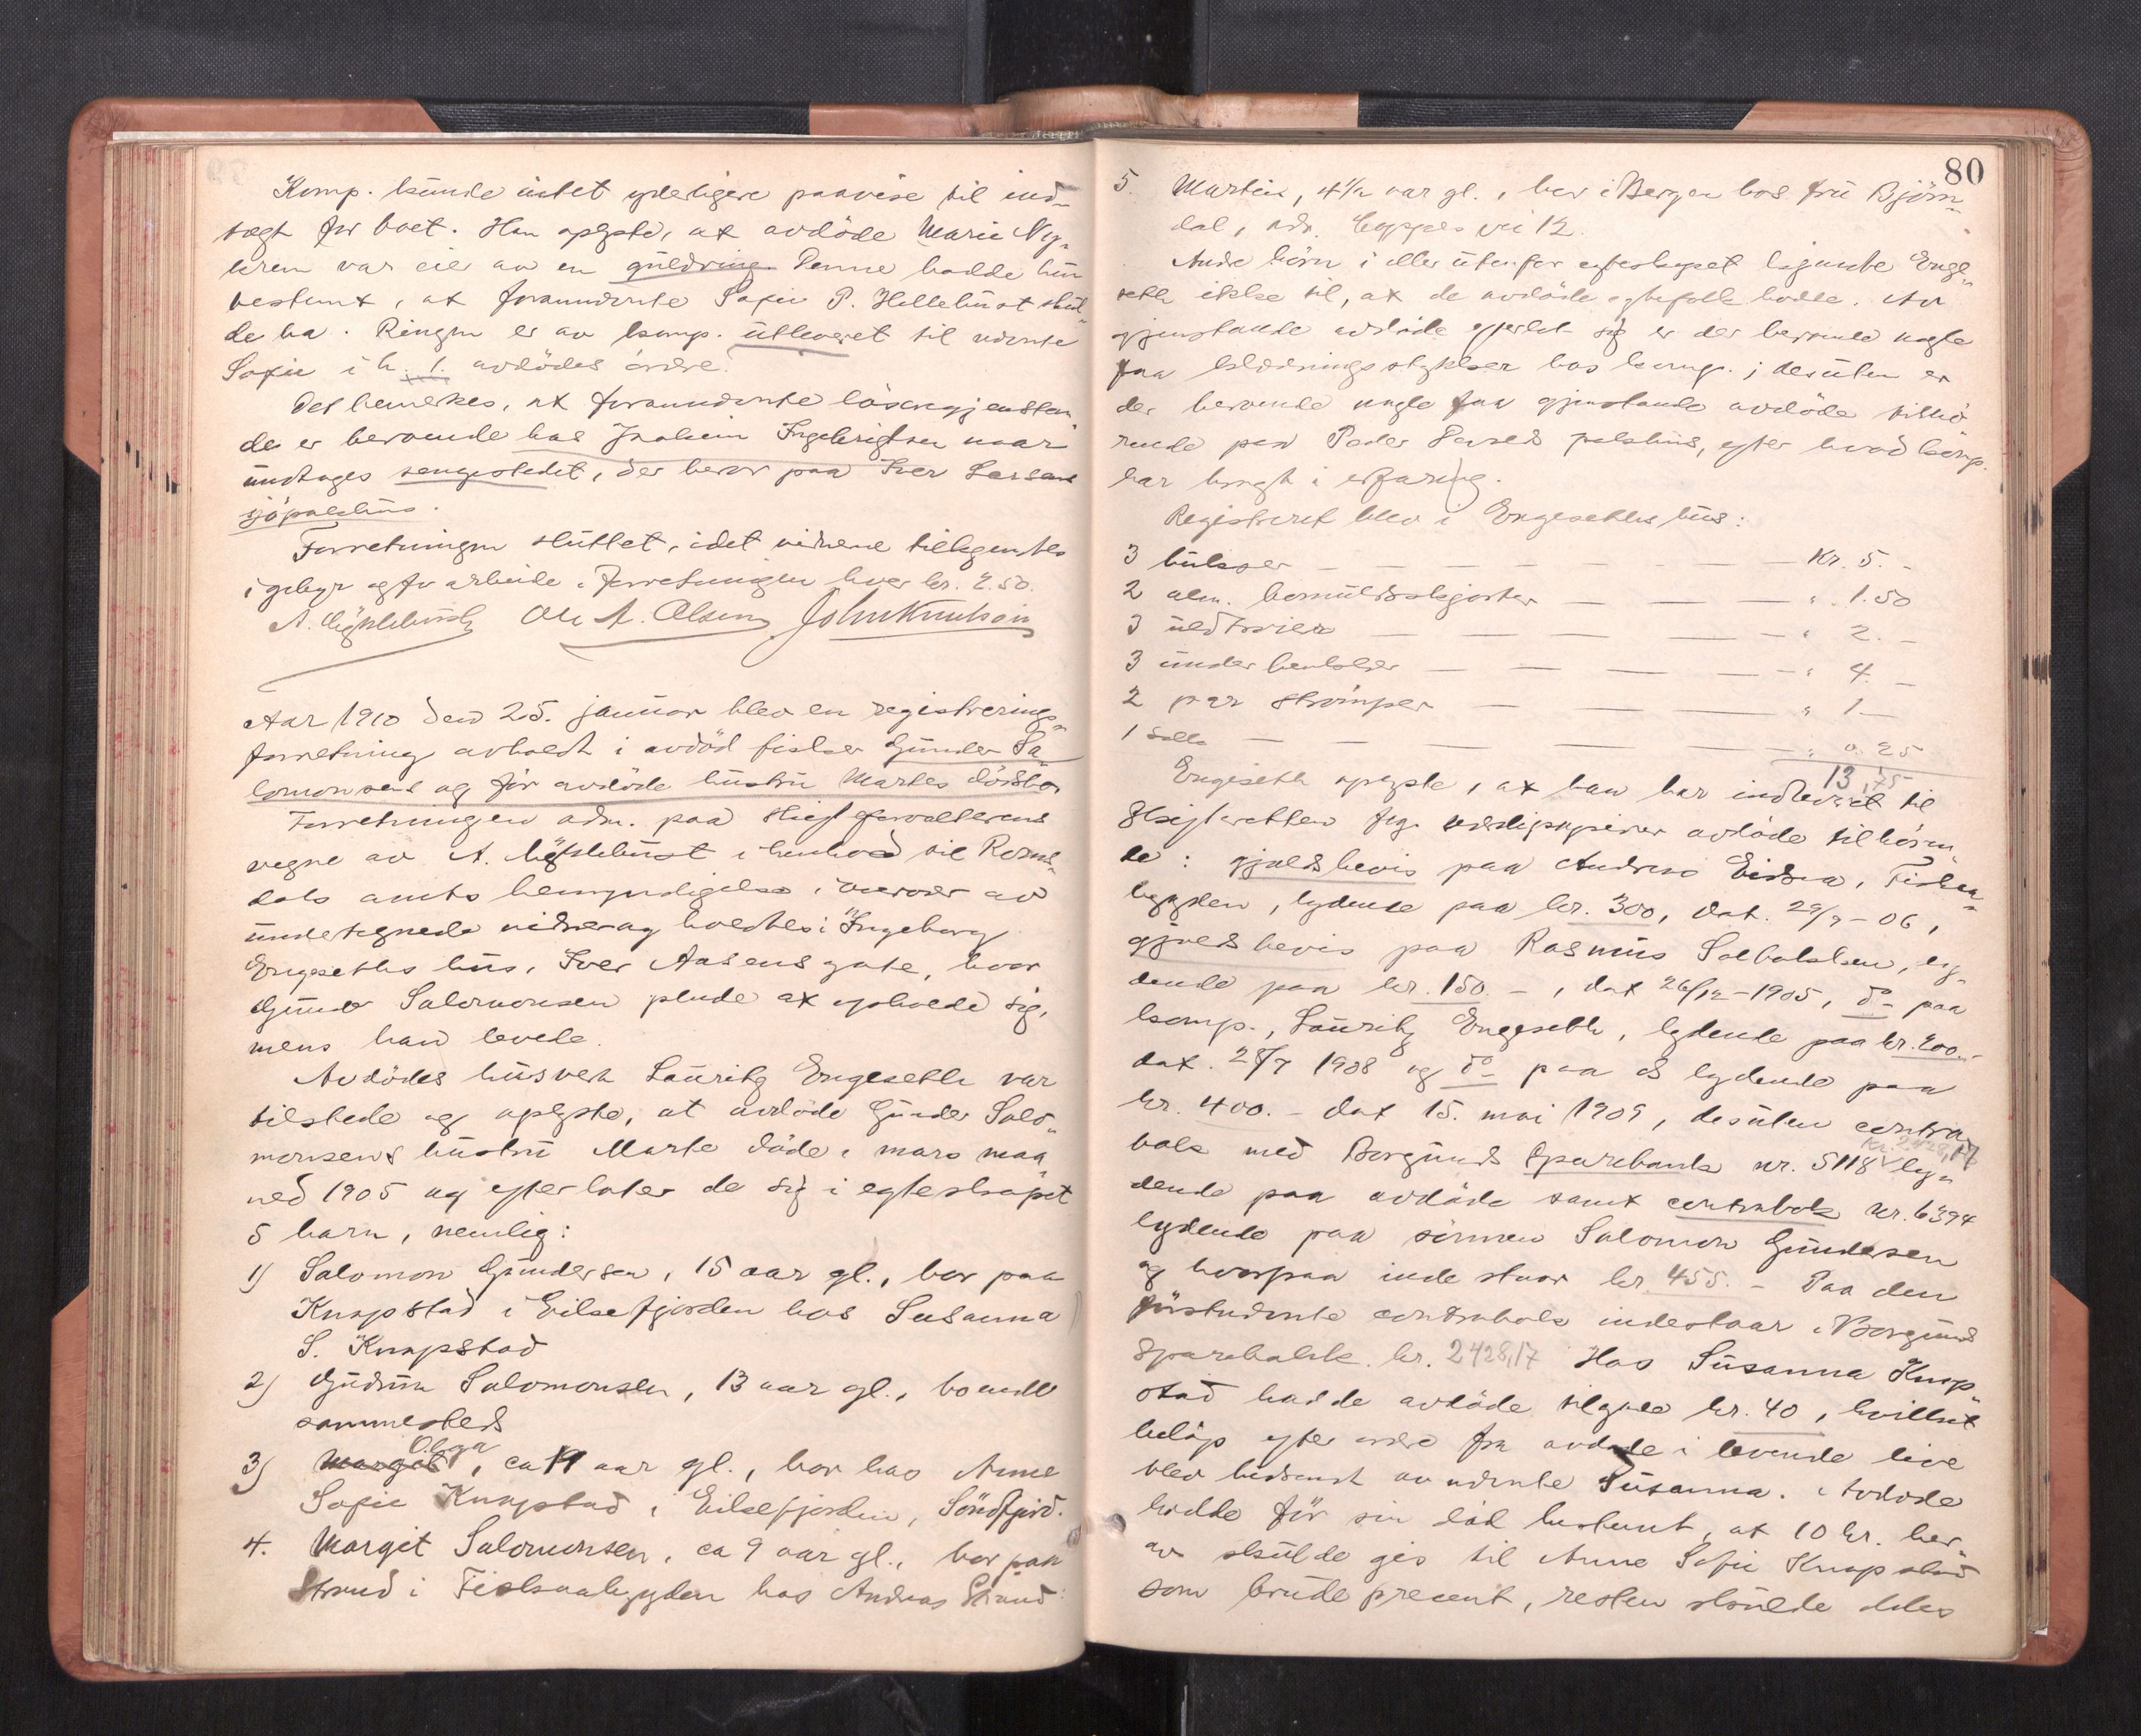 Komp. kunde intet yderligere paavise til ind-
tægt for boet. Han oplyste, at avdöde Marie Ny-
leren var eier av en guldring. Denne hadde hun
bestemt, at foranndvnte Sofie P. Hellebust skul-
de ha. Ringen er av komp. utleveret til nævnte
Sofie i h. t. avdödes ordre.
Det bemerkes, at foranndvnte lösöregjenstan-
de er beroende hos Joakim Ingebrigtsen naar
undtages sengestedet, der beror paa Iver Larsens
sjöpakhus.
Forretningen sluttet, idet vidnene tilkjendtes
i gebyr og for arbeide i forretningen hver kr. 2.50.
Ole A. Olsen John Knutson
Aar 1910 den 25. januar blev en registrerings-
forretning avholdt i avdöd fisker Gunder Sa-
lomonsens og för avdöde hustru Martes dödsbo.
Forretningen adm. paa skifteforvalterens
vegne av A. i henhold til Roms-
dals amts bemyndigelse i overvær av
undertegnede vidner og holdtes i Ingeborg
Engeseths hus, Iver Aasens gate, hvor
Gunder Salomonsen pleide at opholde sig,
mens han levede.
Avdödes husvert Lauritz Engeseth var
tilstede og oplyste, at avdöde Gunder Salo-
monsens hustru Marte döde i mars maa-
ned 1905 og efterlater de sig i egteskapet
5 barn, nemlig:
1) Salomon Gundersen, 15 aar gl., bor paa
Knapstad i Eikefjorden hos Susanna
S. Knapstad
2) Gudrun Salomonsen, 13 aar gl., boende
sammesteds
Olga
3) Margit, ca 11 aar gl., bor hos Anne
Sofie Knapstad i Eikefjorden, Söndfjord.
4. Margit Salomonsen, ca 9 aar gl., bor paa
Strand i Fiskaabygden hos Andreas Strand
80
5. Martin, 4 1/2 aar gl., bor i Bergen hos fru Björn-
dal, adr. vei 12.
Andre börn i eller utenfor egteskapet kjendte Enge-
seth ikke til, at de avdöde egtefolk hadde. Av
gjenstande avdöde efterlot sig er der beroende nogle
faa klædningsstykker hos komp.; desuten er
der beroende nogle faa gjenstande avdöde tilhö-
rende paa Peder pakhus, efter hvad komp.
har bragt i erfaring.
Registreret blev i Engeseths hus:
3 bukser — — — — — Kr. 5. -
2 alm. bomuldsskjorter — — — " 1.50
3 uldtröier — — — — " 2. -
3 underbenklær — — — — " 4. -
2 par strömper — — — " 1. -
1 — — — — — " 0.25
13,75
Engeseth oplyste, at han har indleveret til
Skifteretten flg. verdipapirer avdöde tilhören-
de: gjeldsbevis paa Andreas Eidsaa, Fiskaa-
bygden, lydende paa kr. 300, dat. 29/9-06,
gjeldsbevis paa Rasmus Solbakken, ly-
dende paa kr. 150. -, dat 26/12-1905, do paa
komp., Lauritz Engeseth, lydende paa kr. 200.-
dat. 28/7 1908 og do paa do lydende paa
kr. 400. - dat 15. mai 1909, desuten contra-
kr. 2428,17
bok med Borgunds Sparebank nr. 5118 ly-
dende paa avdöde samt contrabok nr. 6394
lydende paa sönnen Salomon Gundersen
og hvorpaa inde staar kr. 455. - Paa den
förstnævnte contrabok indestaar i Borgunds
Sparebank kr. 2428,17 Hos Susanna Knap-
stad hadde avdöde tilgode kr. 40, hvilket
belöp efter ordre fra avdöde i levende live
blev bestemt av nævnte Susanna. Avdöde
hadde för sin död bestemt, at 10 kr. her-
av skulde gis til Anne Sofie Knapstad
som brudepresent, resten skulde deles